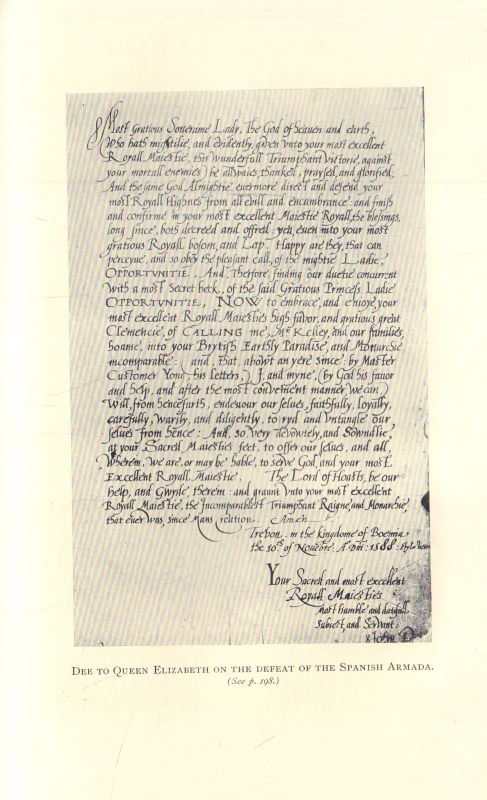 Most gratious Soueraine Lady, The God of heauen and earth,
Who hath mightilie, and evidently, given vnto your most excellent
Royall Maiestie, this wunderfull Triumphant Victorie, against
your mortall enemies, be allwaies, thanked, praysed, and glorified;
And the same God Almightie, euermore direct and defend, your
most Royall Highnes from all evill and encumbrance: and finish
and confirme in your most excellent Maiestie Royall, the blessings,
long since, both decreed and offred: yea, even into your most
gratious Royall bosom, and Lap. Happy are they, that can
perceyue, and so obey the pleasant call, of the mightie Ladie,
OPPORTVNITIE. And, Therfore, finding our duetie concurrent
with a most Secret beck, of the said Gratious Princess, Ladie
OPPORTVNITIE, NOW to embrace, and enioye, your
most excellent Royall Maiesties high favor, and gratious great
Clemencie, of CALLING me, Mr Kelley, and our families,
hoame, into your Brytish Earthly Paradise, and Monarchie
incomparable: (and, that, abowt an yere since, by Master
Customer Yong, his letters,) I, and myne, (by God his favor
and help, and after the most convenient manner, we can)
Will, from hencefurth, endeuour our selues, faithfully, loyally,
carefully, warily, and diligently, to ryd and vntangle our
selues from hence: And, so, very devowtely, and Sowndlie,
at your Sacred Maiesties feet, to offer our selues, and all,
Wherem, we are, or may be hable, to serve God, and your most
Excellent Royall Maiestie. The Lord of Hoasts, be our
help, and Gwyde, therein: and graunt vnto your most excellent
Royall Maiestie, the Incomparablest Triumphant Raigne, and Monarchie,
that euer was, since Mans creation. Amen.
Trebon. in the kingdome of Boemia
the 10th of Nouebre: A. Dm: 1588: stylo
Your Sacred and most excellent
Royall Maiesties
most humble and dutifull
Subiect, and Servant:
John Dee
DEE TO QUEEN ELIZABETH ON THE DEFEAT OF THE SPANISH ARMADA.
(See p. 198.)